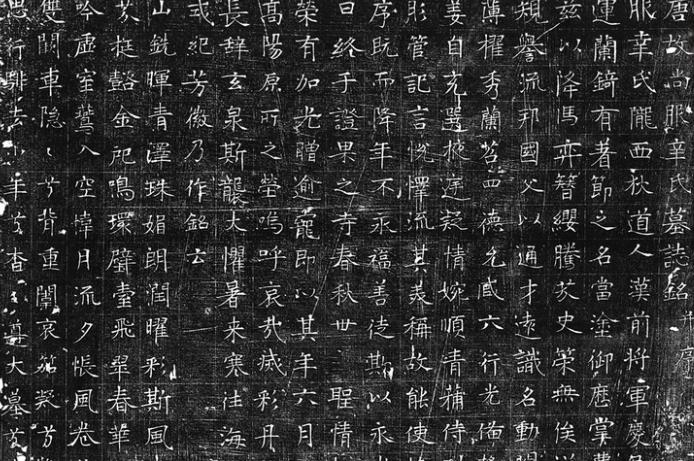 唐故尚服幸氏墓誌銘并序
服幸氏隴西狄道人漢前將軍慶
運蘭錡有著節之名當塗御曆掌
茲以降馮弈簪纓騰茂史榮無俟
規譽流邦國父以通才遠識名動
薄擢秀蘭苕四德允咸六行光備
姜自充選掖庭凝情婉順清蕤侍
彤管記言悅懌流其美稱故能使
序既而降年不永福善徒斯以永
日終于證果之寺春秋世聖情
榮有加光贈逾寵即以其年六月
高陽原所之塋嗚呼哀哉緘彩丹
長辭玄泉斯襲大懼暑来寒往海
或紀芳徽乃作銘云
山銑暉青澤珠媚朗潤曜彩斯風
芬挺谿金祀鳴環璧臺飛翠春華
吟虛室鶩入空幃月流夕帳風卷
雙闕車隱隱兮背重闉哀笳聚兮
思行騑去年兮杳尊大墓兮